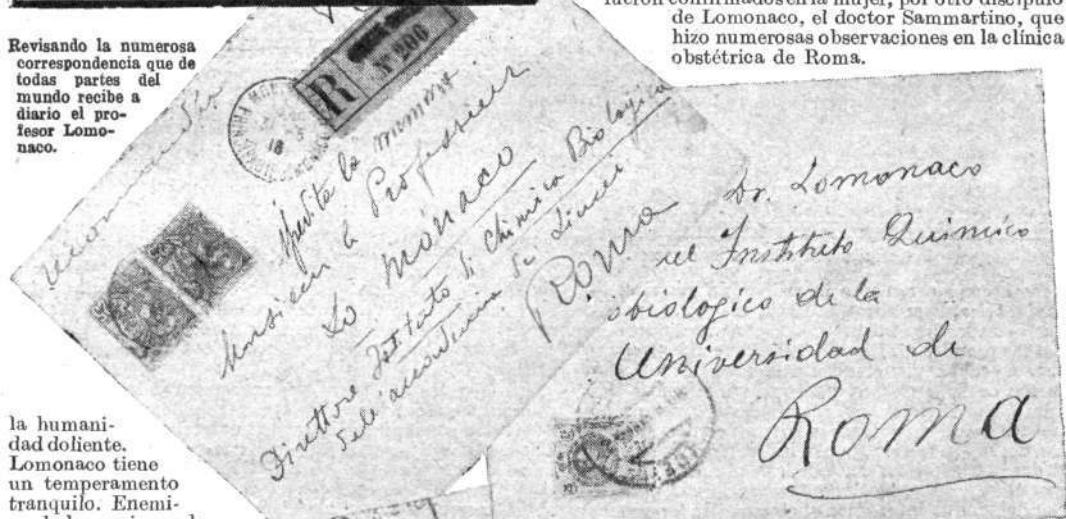 fueron confirmados en la mujer, por otro discípulo
de Lomonaco, el doctor Sammartino, que
hizo numerosas observaciones en la clínica
obstétrica de Roma.
Revisando la numerosa
correspondencia que de
todas partes del
mundo recibe a
diario el pro-
fesor Lomo-
naco.
R
Nº 200
18
Monsieur le Professeur
Lo monaco
Direttore Istituto di Chimica Biologica
Roma
Dr. Lomonaco
del Instituto Quimico
biologico de la
Universidad de
Roma
la humani-
dad doliente.
Lomonaco tiene
un temperamento
tranquilo. Enemi-